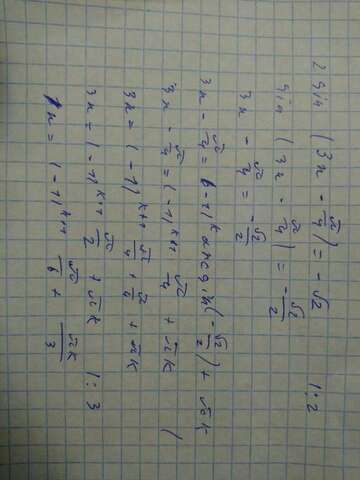 2 sin (3x - π/4) = - √2 | 1:2
sin (3x - π/4) = - √2/2
3x - π/4 = - √2/2
3x - π/4 = (-1)ᵏ arcsin (- √2/2) + πk
3x - π/4 = (-1)ᵏ⁺¹ π/4 + πk |
3x = (-1)ᵏ⁺¹ π/4 + π/4 + πk
3x = (-1)ᵏ⁺¹ π/2 + πk | 1:3
x = (-1)ᵏ⁺¹ π/6 + πk/3